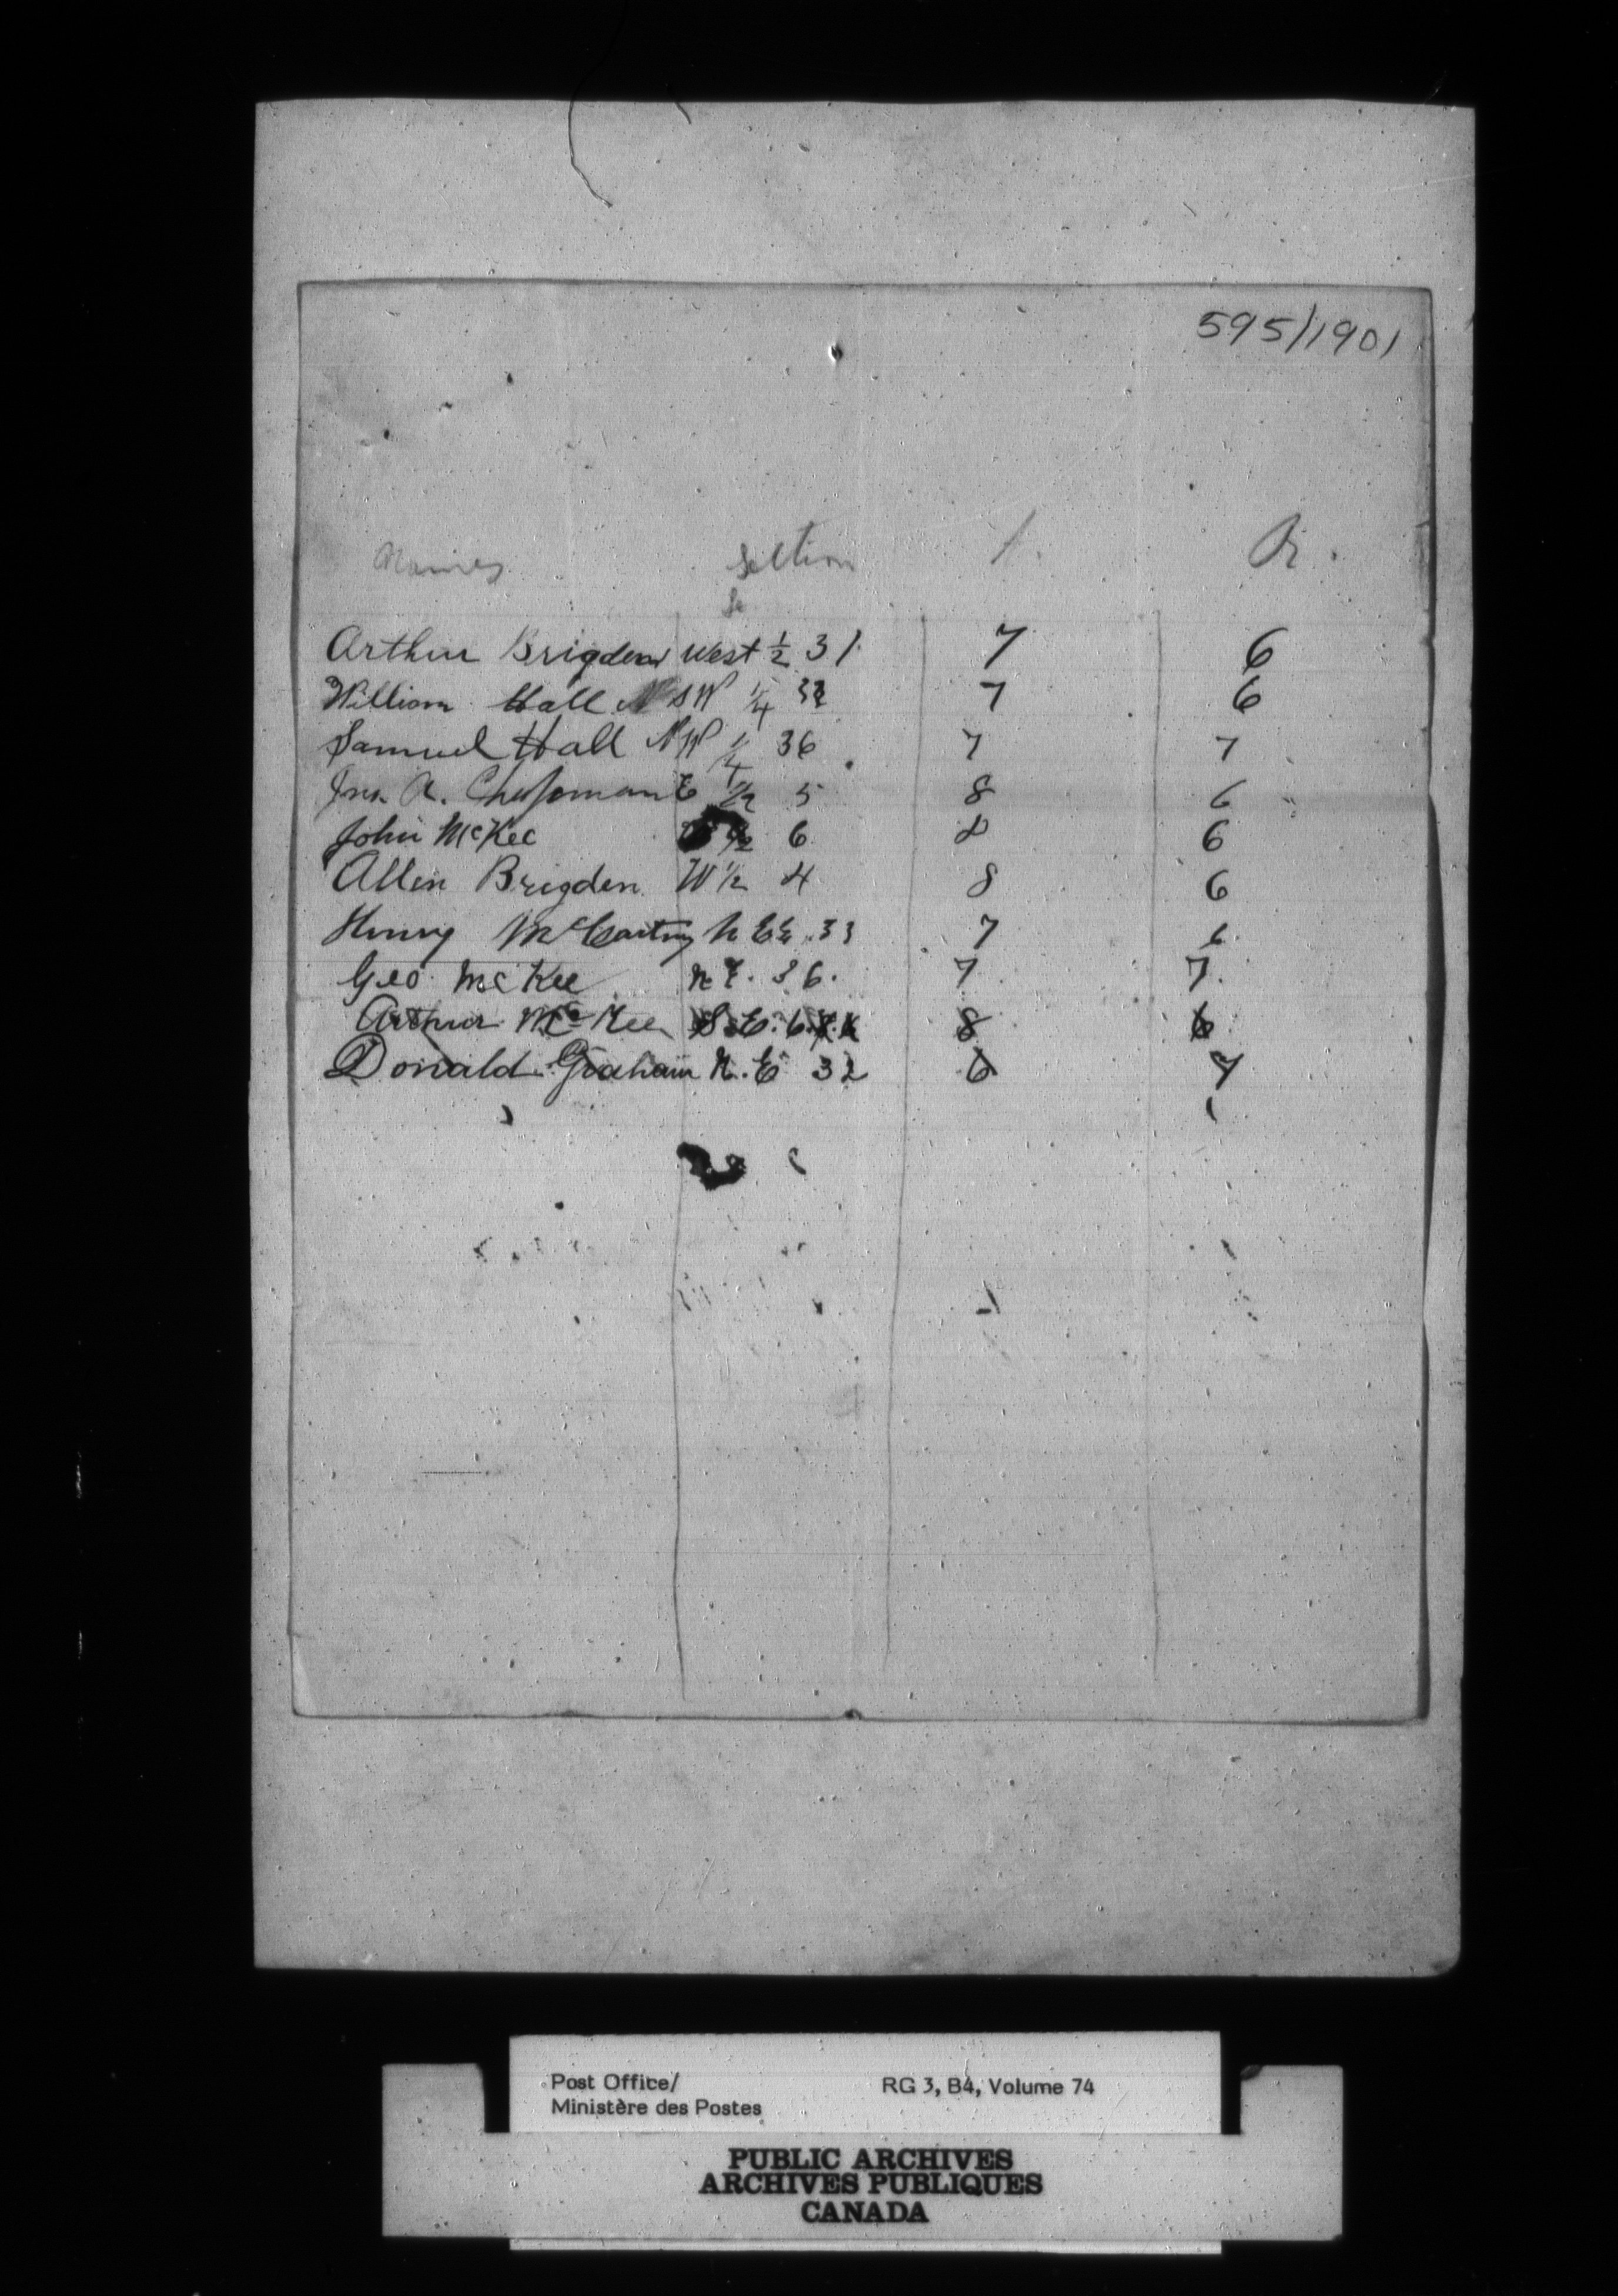 595/1901
Names Section T. R.
Se
Arthur Brigden West 1/2 31 7 6
William Hall SW 1/4 32 7 6
Samuel Hall NW 1/4 36 7 7
Jno. A. E 1/2 5 8 6
John McKee 1/2 6 8 6
Allen Brigden W 1/2 4 8 6
Henry McCartney N E 33 7 6
Geo McKee N E. 36. 7 7.
Arthur McKee S.E. 6. 8 6
Donald Graham N.E 32 6 7
Post Office/ RG 3, B4, Volume 74
Ministère des Postes
PUBLIC ARCHIVES
ARCHIVES PUBLIQUES
CANADA